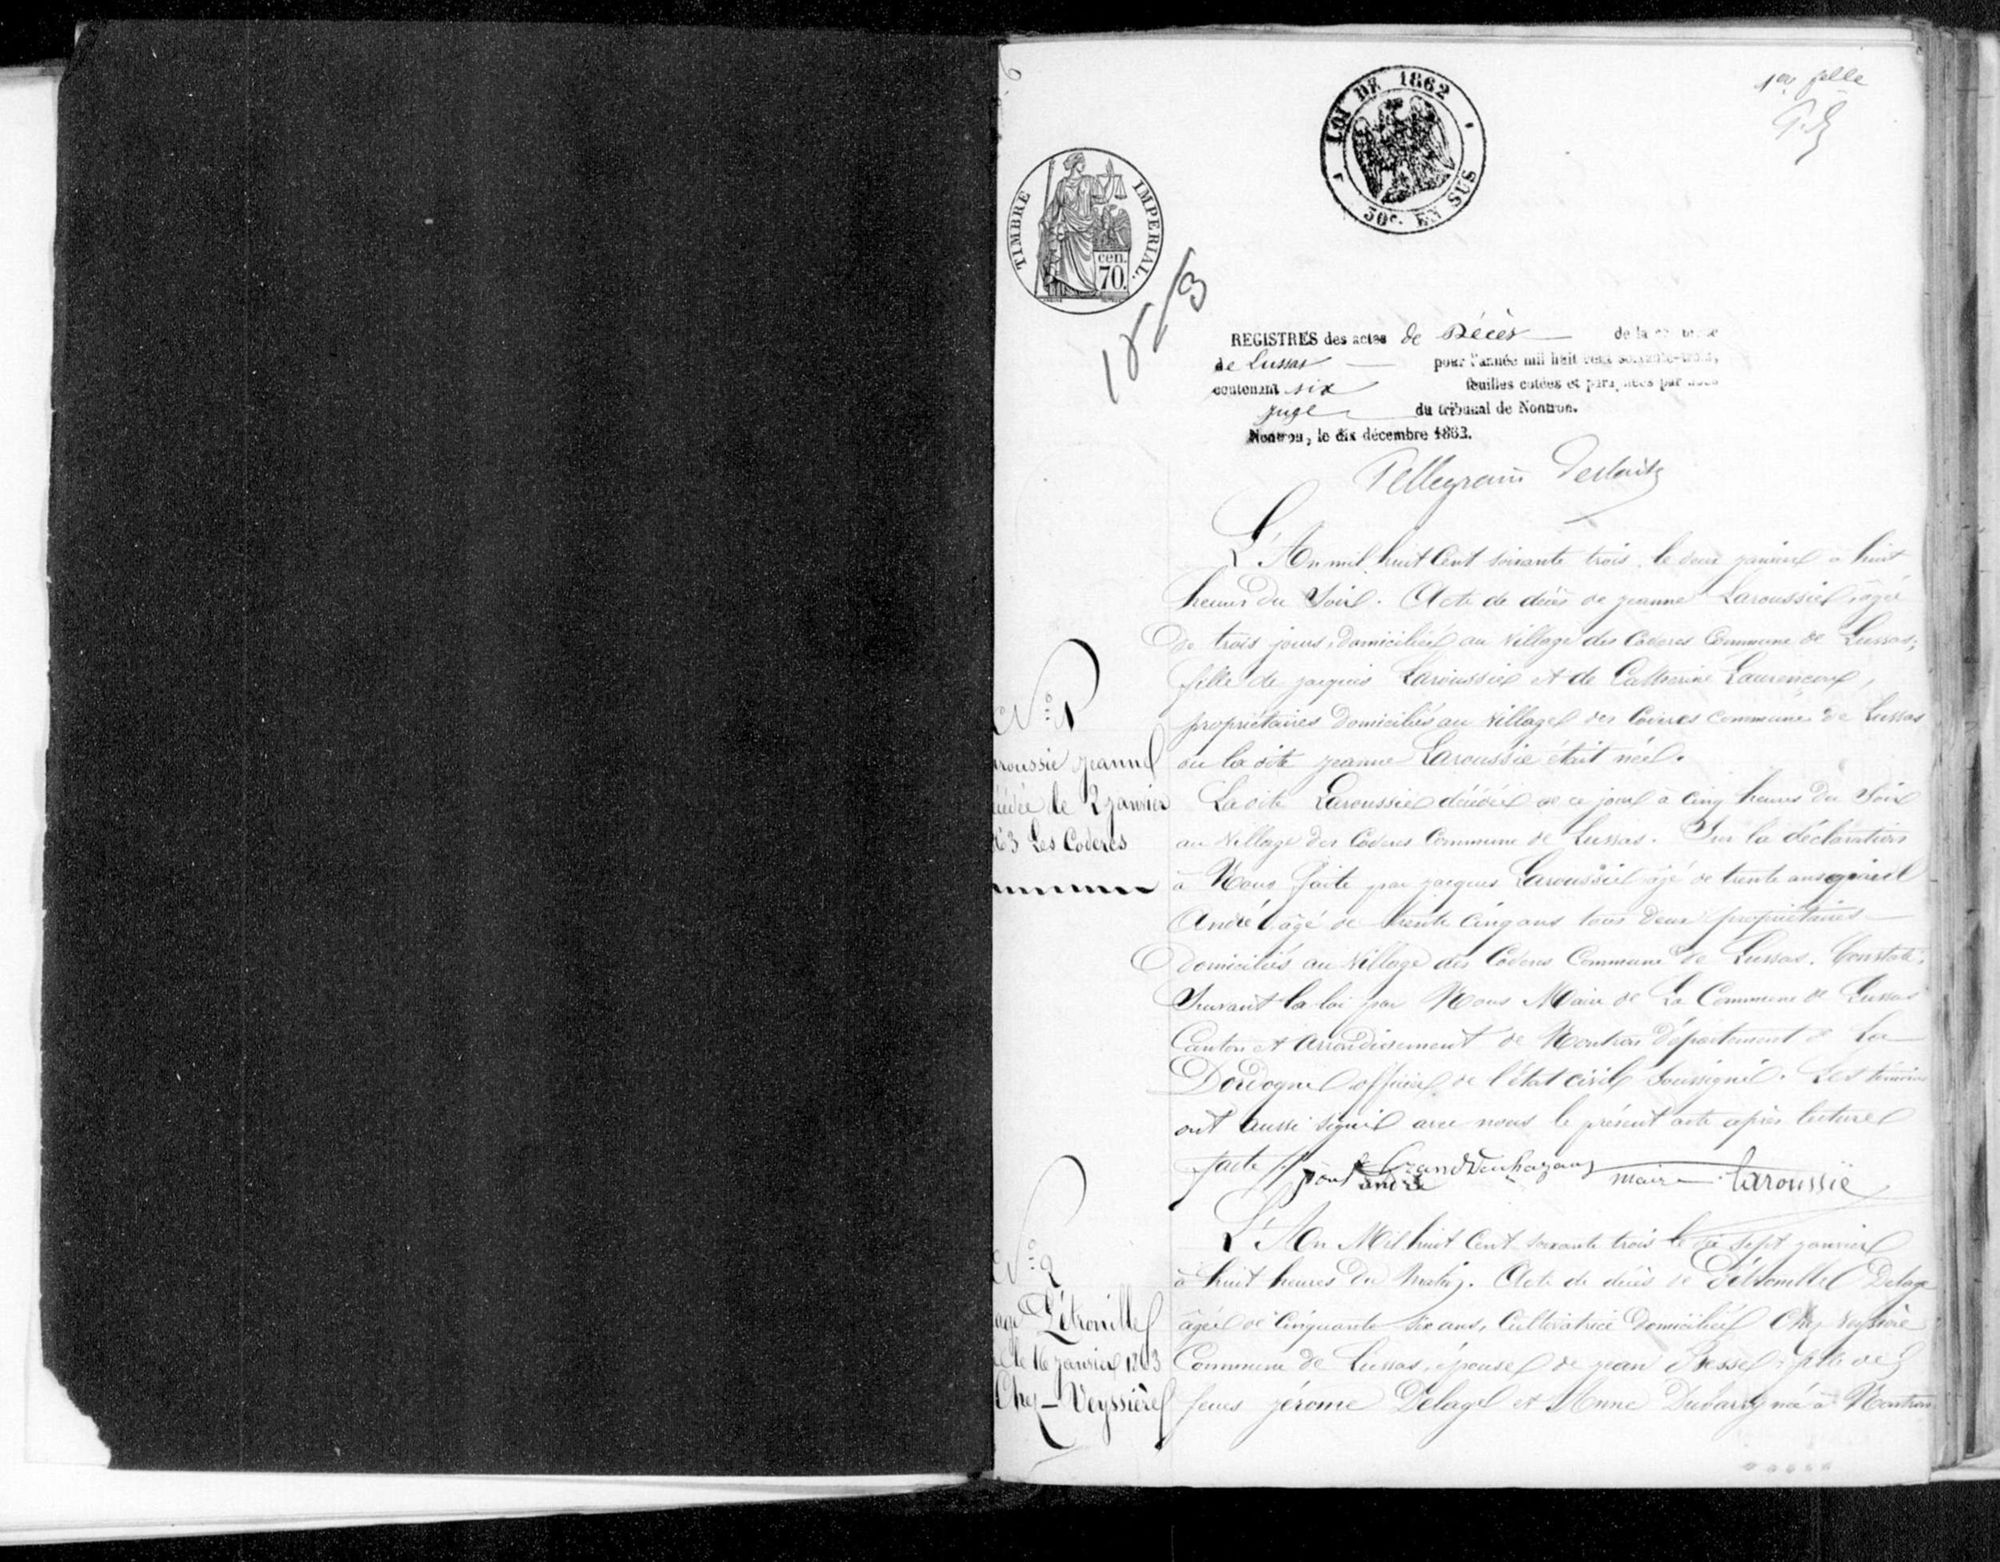 1ere felle
P.D
LOI DE 1862
50c. EN SUS
TIMBRE IMPERIAL.
cen. 70.
1863
REGISTRES des actes de Décès de la commune
de Lussas pour l'année mil huit cent soixante-trois,
contenant six feuilles cotées et paraphées par nous
juge du tribunal de Nontron.
Nontron, le dix décembre 1862.
L'An mil huit Cent soixante trois, le deux janvier à huit
heures du Soir. Acte de décès de jeanne Laroussie, âgée
de trois jours, domiciliée au village des Coderes Commune de Lussas,
fille de jacques Laroussie et de Catherine Laurencoux,
propriétaires domiciliés au village des Coderes commune de Lussas
ou la dite jeanne Laroussie était née.
La dite Laroussie décédée de ce jour à cinq heures du Soir
au village des Coderes Commune de Lussas. Sur la déclaration
à Nous faite par jacques Laroussie âgé de trente ans
André âgé de trente cinq ans tous deux propriétaires
domiciliés au village des Coderes Commune de Lussas. Constaté
Suivant la loi par Nous Maire de La Commune de Lussas
Canton et Arrondissement de Nontron département de La
Dordogne officier de l'état civil Soussigné. Les témoins
ont aussi signé avec nous le présent acte après lecture
faite
andré maire Laroussie
No 1
aroussie jeanne
cédée le 2 janvier
63 Les Coderes
L'An Mil huit Cent soixante trois le dix sept janvier
à huit heures du Matin. Acte de décès de Pétronille Delage
âgée de Cinquante six ans, Cultivatrice domiciliée Chez Veyssière
Commune de Lussas, épouse de jean Besse, fille de
feues jérome Delage et Anne Dubarry née à Nontron
No 2
age Pétronille
ée le 16 janvier 1863
Chez-Veyssière